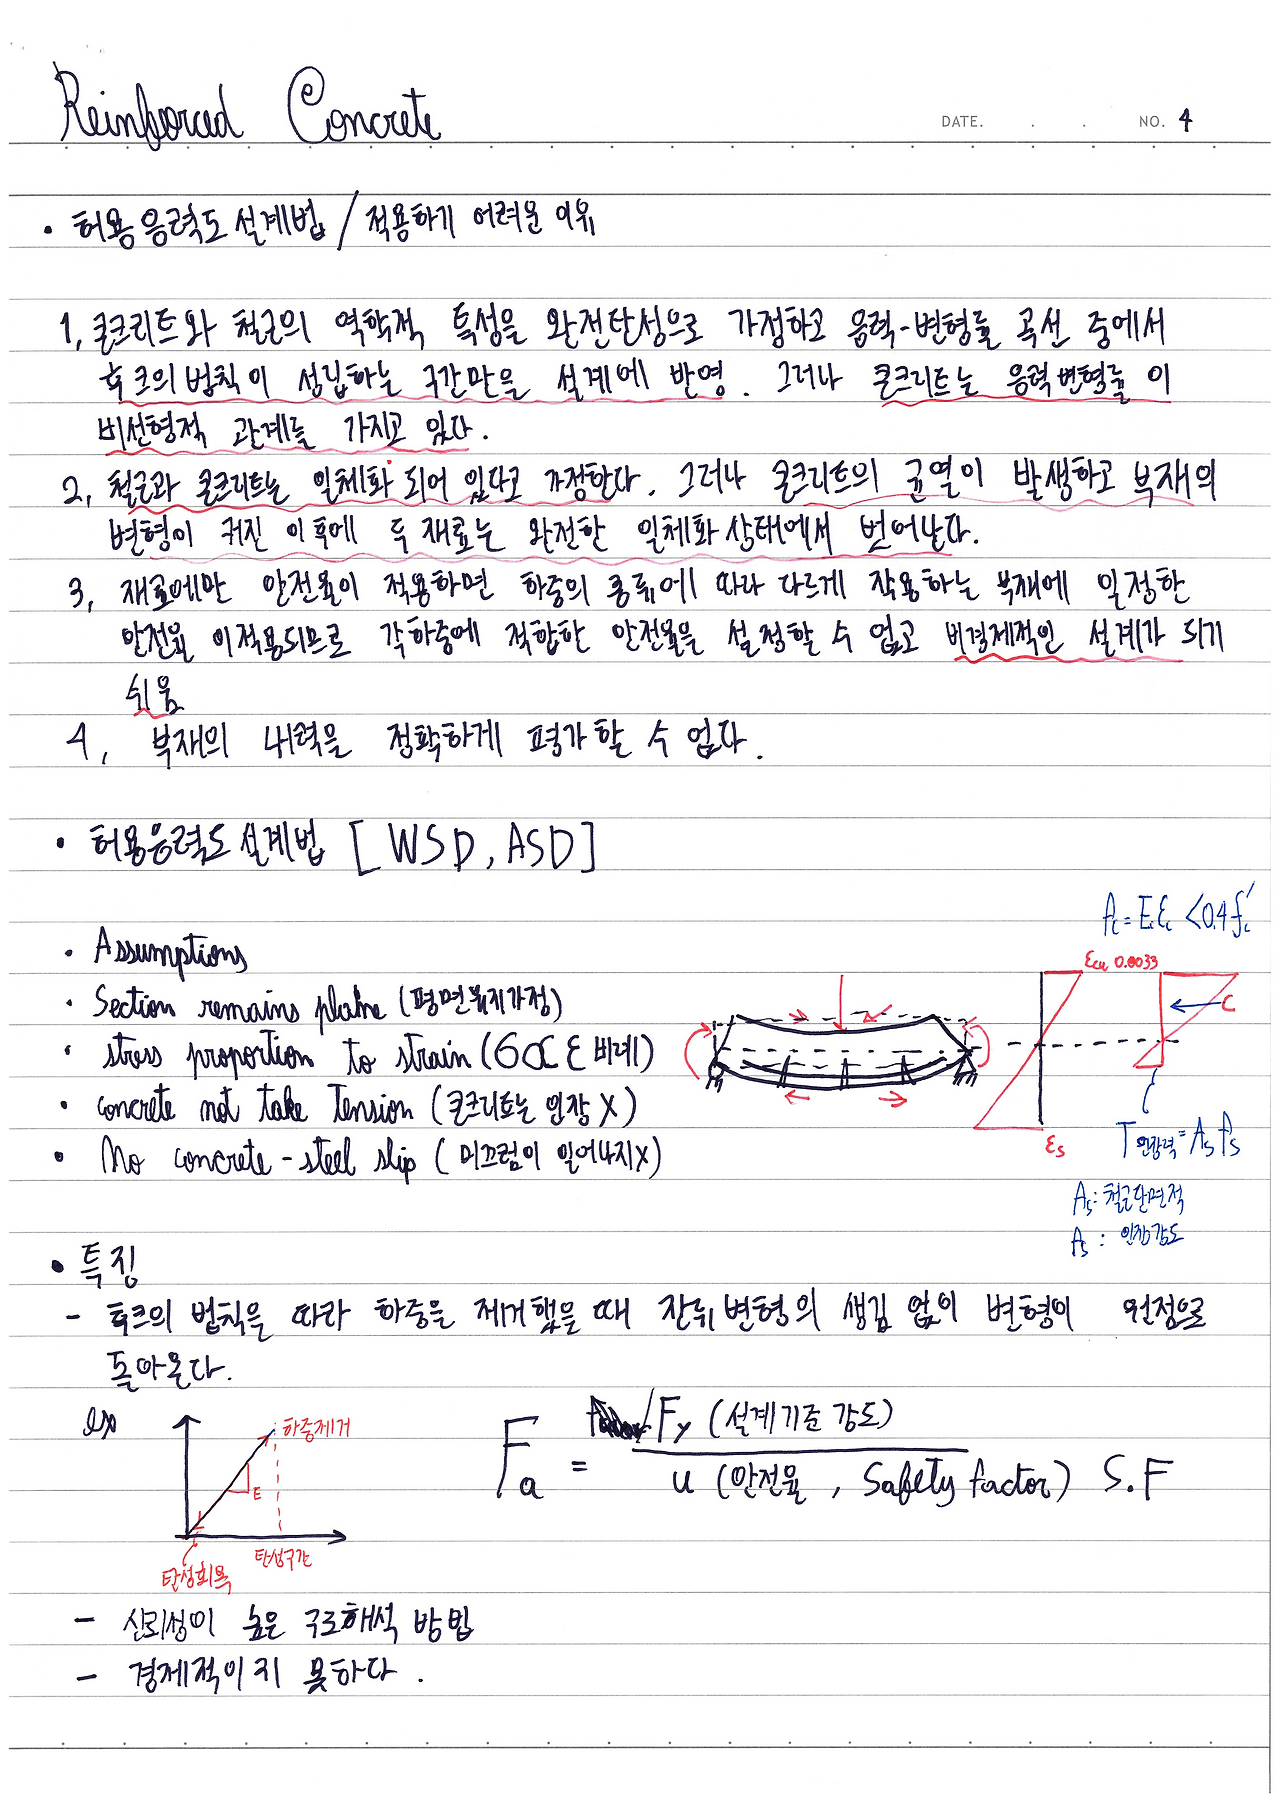 Reinforced Concrete
DATE. . . NO. 4
• 허용응력도 설계법 / 적용하기 어려운 이유
1, 콘크리트와 철근의 역학적 특성을 완전탄성으로 가정하고 응력-변형률 곡선 중에서
후크의 법칙이 성립하는 구간만을 설계에 반영. 그러나 콘크리트는 응력변형률이
비선형적 관계를 가지고 있다.
2, 철근과 콘크리트는 일체화 되어 있다고 가정한다. 그러나 콘크리트의 균열이 발생하고 부재의
변형이 커진 이후에 두 재료는 완전한 일체화 상태에서 벗어난다.
3, 재료에만 안전율이 적용하면 하중의 종류에 따라 다르게 작용하는 부재에 일정한
안전율이 적용되므로 각 하중에 적합한 안전율을 설정할 수 없고 비경제적인 설계가 되기
쉬움
4, 부재의 내력을 정확하게 평가할 수 없다.
• 허용응력도 설계법 [WSD, ASD]
fc = EcEc < 0.4f'c
• Assumptions
εcu 0.0033
• Section remains plane (평면유지가정)
C
• stress proportion to strain (σ∝ε 비례)
• concrete not take Tension (콘크리트는 인장 X)
• No concrete-steel slip (미끄럼이 일어나지X)
εs
T 인장력 = As fs
As : 철근단면적
fs : 인장강도
• 특징
- 후크의 법칙을 따라 하중을 제거했을 때 잔류변형의 생김 없이 변형이 원점으로
돌아온다.
ex
하중제거
E
탄성구간
탄성회복
Fa = Fy (설계기준 강도) / u (안전율, Safety factor) S.F
- 신뢰성이 높은 구조해석 방법
- 경제적이지 못하다.